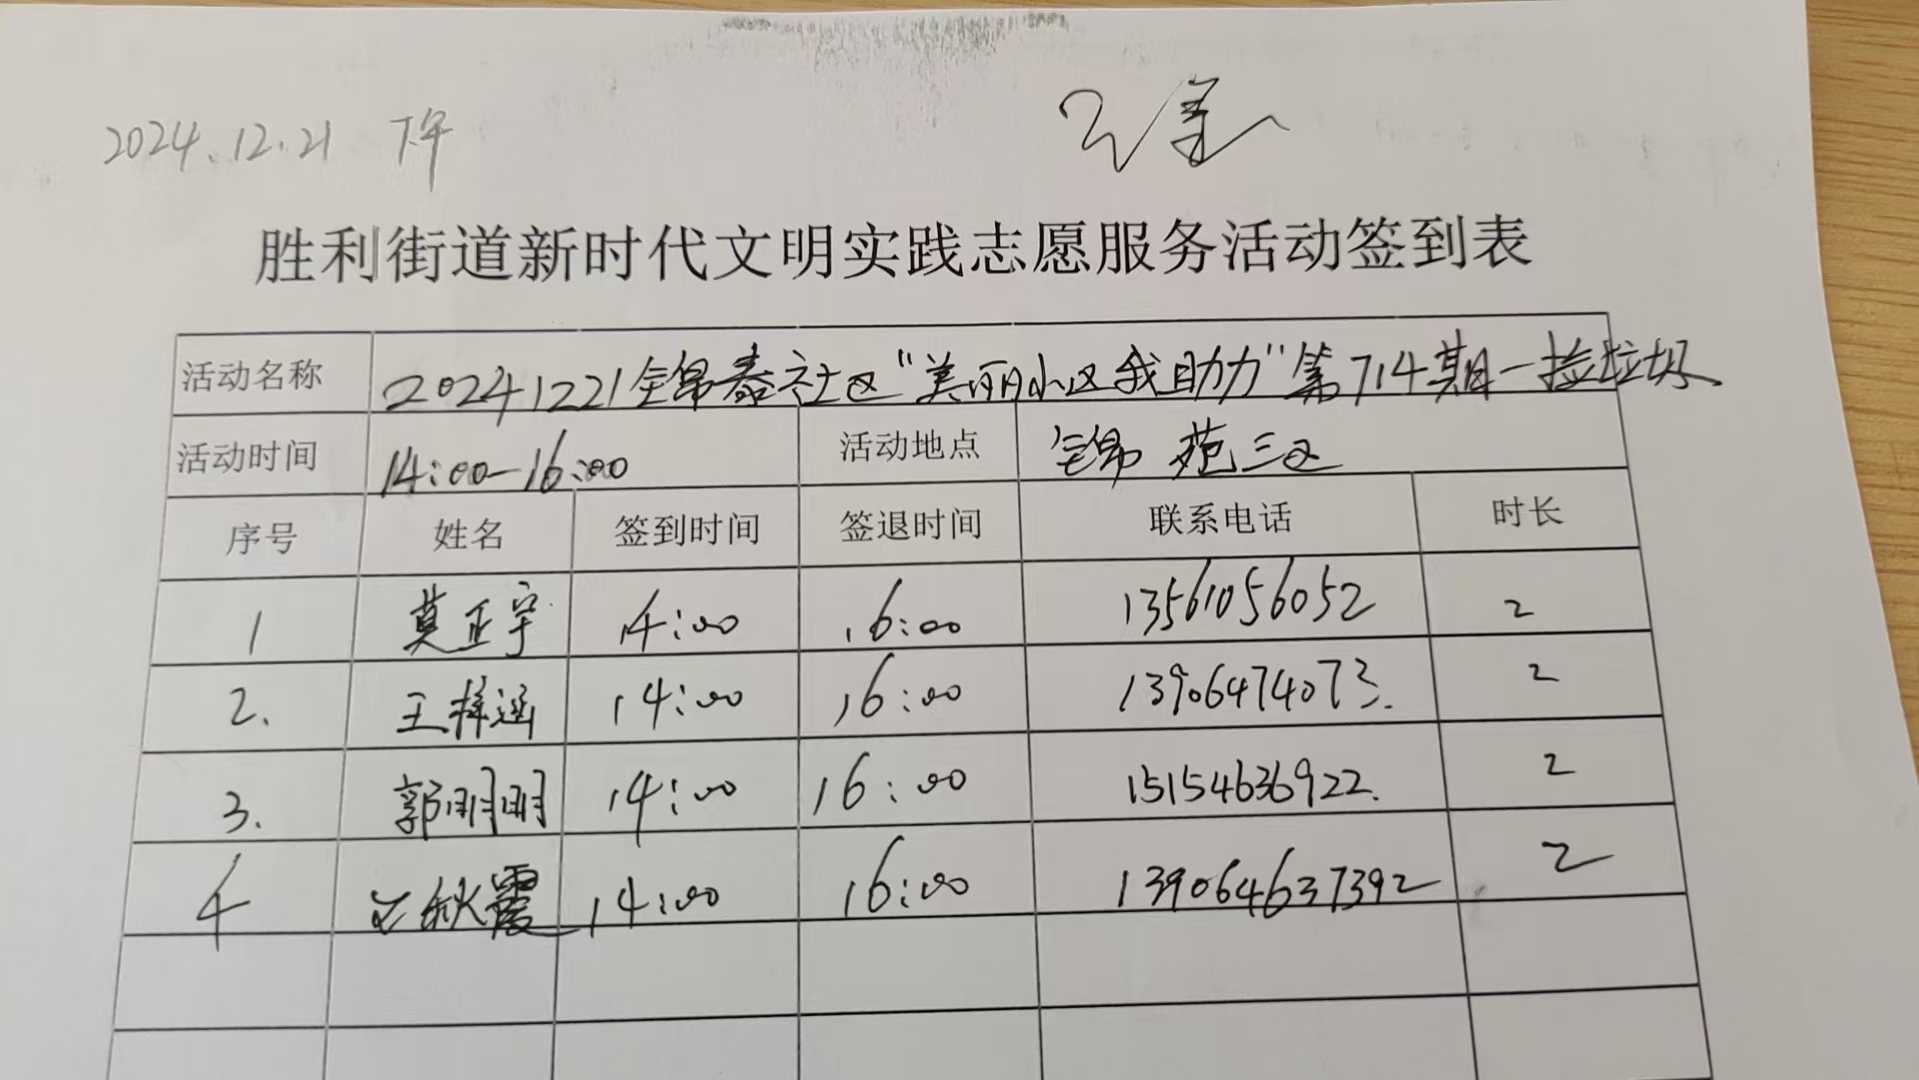 2024.12.21 下午
胜利街道新时代文明实践志愿服务活动签到表
活动名称 20241221锦泰社区“美丽小区我助力”第714期—捡垃圾
活动时间 14:00-16:00 活动地点 锦苑三区
序号 姓名 签到时间 签退时间 联系电话 时长
1 莫正宇 14:00 16:00 13561056052 2
2. 王梓涵 14:00 16:00 13906474073. 2
3. 郭明明 14:00 16:00 15154636922. 2
4 秋霞 14:00 16:00 139064637392 2